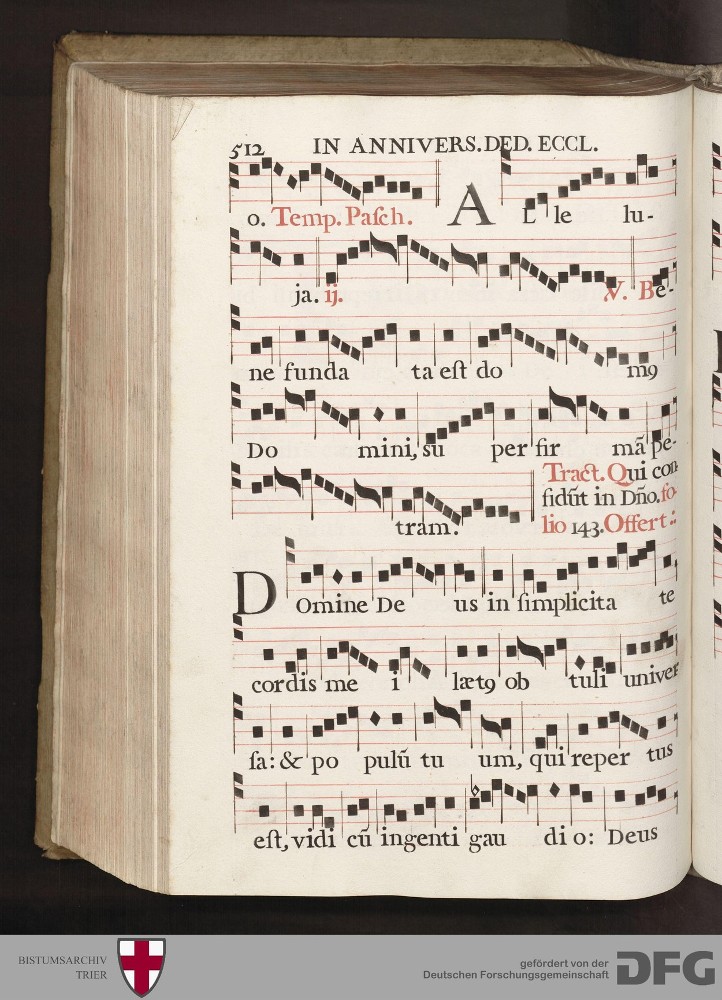 512 IN ANNIVERS. DED. ECCL.
o. Temp. Paſch. AL le lu-
ja. ij. V. Be-
ne funda ta eſt do mꝰ
Do mini, su per fir mã pe-
tram. Tract. Qui con
fidũt in Dño. fo-
lio 143. Offert:
DOmine De us in ſimplicita te
cordis me i lætꝰ ob tuli univer
ſa: & po pulũ tu um, qui reper tus
eſt, vidi cũ ingenti gau di o: Deus
BISTUMSARCHIV
TRIER
gefördert von der
Deutschen Forschungsgemeinschaft
DFG